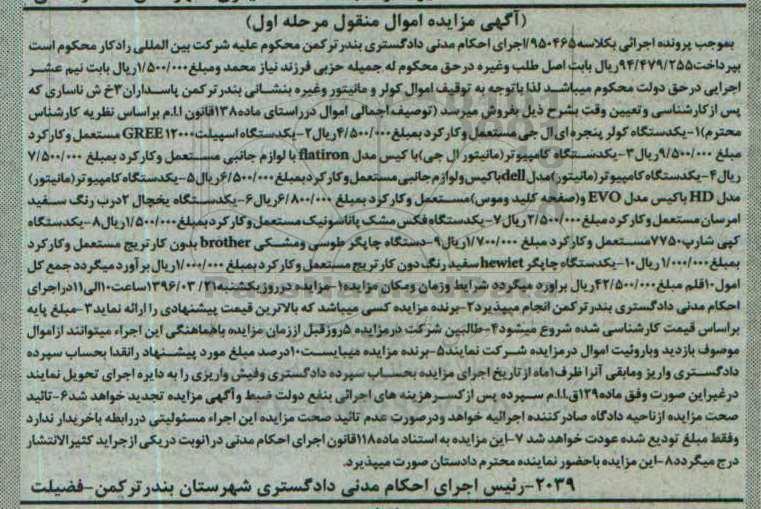 (آگهی مزایده اموال منقول مرحله اول)
بموجب پرونده اجرائی بکلاسه ۹۵۰۴۶۵/اجرای احکام مدنی دادگستری بندرترکمن محکوم علیه شرکت بین المللی رادکار محکوم است
بپرداخت ۹۴/۴۷۹/۲۵۵ریال بابت اصل طلب وغیره درحق محکوم له جمیله حزبی فرزند نیاز محمد ومبلغ ۱/۵۰۰/۰۰۰ریال بابت نیم عشر
اجرایی درحق دولت محکوم میباشد لذا باتوجه به توقیف اموال کولر و مانیتور وغیره بنشانی بندرترکمن پاسداران۳خ ش ناساری که
پس ازکارشناسی وتعیین وقت بشرح ذیل بفروش میرسد (توصیف اجمالی اموال درراستای ماده۱۳۸قانون ا.ا.م براساس نظریه کارشناس
محترم)۱-یکدستگاه کولر پنجره ای ال جی مستعمل وکارکرد بمبلغ ۴/۵۰۰/۰۰۰ریال۲-یکدستگاه اسپیلت۱۲۰۰۰ GREE مستعمل وکارکرد
مبلغ ۹/۵۰۰/۰۰۰ریال۳-یکدستگاه کامپیوتر(مانیتور ال جی)با کیس مدل flatiron با لوازم جانبی مستعمل وکارکرد بمبلغ ۷/۵۰۰/۰۰۰
ریال۴-یکدستگاه کامپیوتر(مانیتور)مدل dellباکیس ولوازم جانبی مستعمل وکارکرد بمبلغ۶/۵۰۰/۰۰۰ریال۵-یکدستگاه کامپیوتر(مانیتور)
مدل HD باکیس مدل EVO و(صفحه کلید وموس)مستعمل وکارکرد بمبلغ ۶/۸۰۰/۰۰۰ریال۶-یکدستگاه یخچال ۲درب رنگ سفید
امرسان مستعمل وکارکرد مبلغ ۲/۵۰۰/۰۰۰ریال۷-یکدستگاه فکس مشک پاناسونیک مستعمل وکارکرد بمبلغ۱/۵۰۰/۰۰۰ریال۸-یکدستگاه
کپی شارپ۷۷۵۰مستعمل وکارکرد مبلغ ۱/۷۰۰/۰۰۰ریال۹-دستگاه چاپگر طوسی ومشکی brother بدون کارتریج مستعمل وکارکرد
بمبلغ۱/۰۰۰/۰۰۰ریال۱۰-یکدستگاه چاپگر hewlet سفید رنگ دون کارتریج مستعمل وکارکرد بمبلغ ۱/۰۰۰/۰۰۰ریال برآورد میگردد جمع کل
امول۱۰قلم مبلغ۴۲/۵۰۰/۰۰۰ریال براورد میگردد شرایط وزمان ومکان مزایده۱-مزایده درروزیکشنبه ۱۳۹۶/۰۳/۲۱ساعت۱۰الی۱۱دراجرای
احکام مدنی دادگستری بندرترکمن انجام میپذیرد۲-برنده مزایده کسی میباشد که بالاترین قیمت پیشنهادی را ارائه نماید۳-مبلغ پایه
براساس قیمت کارشناسی شده شروع میشود۴-طالبین شرکت درمزایده ۵روزقبل اززمان مزایده باهماهنگی این اجراء میتوانند ازاموال
موصوف بازدید وباروئیت اموال درمزایده شرکت نمایند۵-برنده مزایده میبایست۱۰درصد مبلغ مورد پیشنهاد رانقدا بحساب سپرده
دادگستری واریز ومابقی آنرا ظرف۱ماه ازتاریخ اجرای مزایده بحساب سپرده دادگستری وفیش واریزی را به دایره اجرای تحویل نمایند
درغیراین صورت وفق ماده۱۲۹ق.ا.ا.م سپرده پس ازکسرهزینه های اجرائی بنفع دولت ضبط وآگهی مزایده تجدید خواهد شد۶-تائید
صحت مزایده ازناحیه دادگاه صادرکننده اجرائیه خواهد ودرصورت عدم تائید صحت مزایده این اجراء مسئولیتی دررابطه باخریدار ندارد
وفقط مبلغ تودیع شده عودت خواهد شد ۷-این مزایده به استناد ماده۱۱۸قانون اجرای احکام مدنی در۱نوبت دریکی ازجراید کثیرالانتشار
درج میگردد۸-این مزایده باحضور نماینده محترم دادستان صورت میپذیرد.
۲۰۳۹-رئیس اجرای احکام مدنی دادگستری شهرستان بندرترکمن-فضیلت